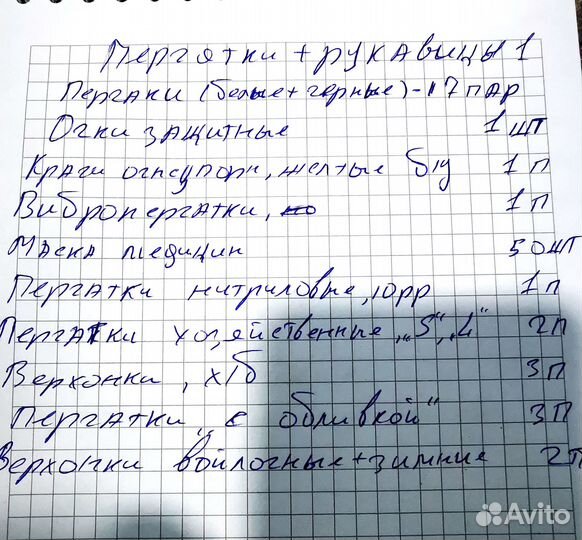 Пергятки + рукавицы 1
Пергаки (белые + черные) - 17 пар
Очки защитные 1 шт
Краги огнеупорн, желтые б/у 1 п
Вибропергатки, 1 п
Маска медицин 50 шт
Пергатки нитриловые, 10рр 1 п
Пергатки хозяйственные "S", "L" 2 п
Верхонки, х/б 3 п
Пергатки "с обливкой" 3 п
Верхонки войлочные + зимние 2 п
Avito